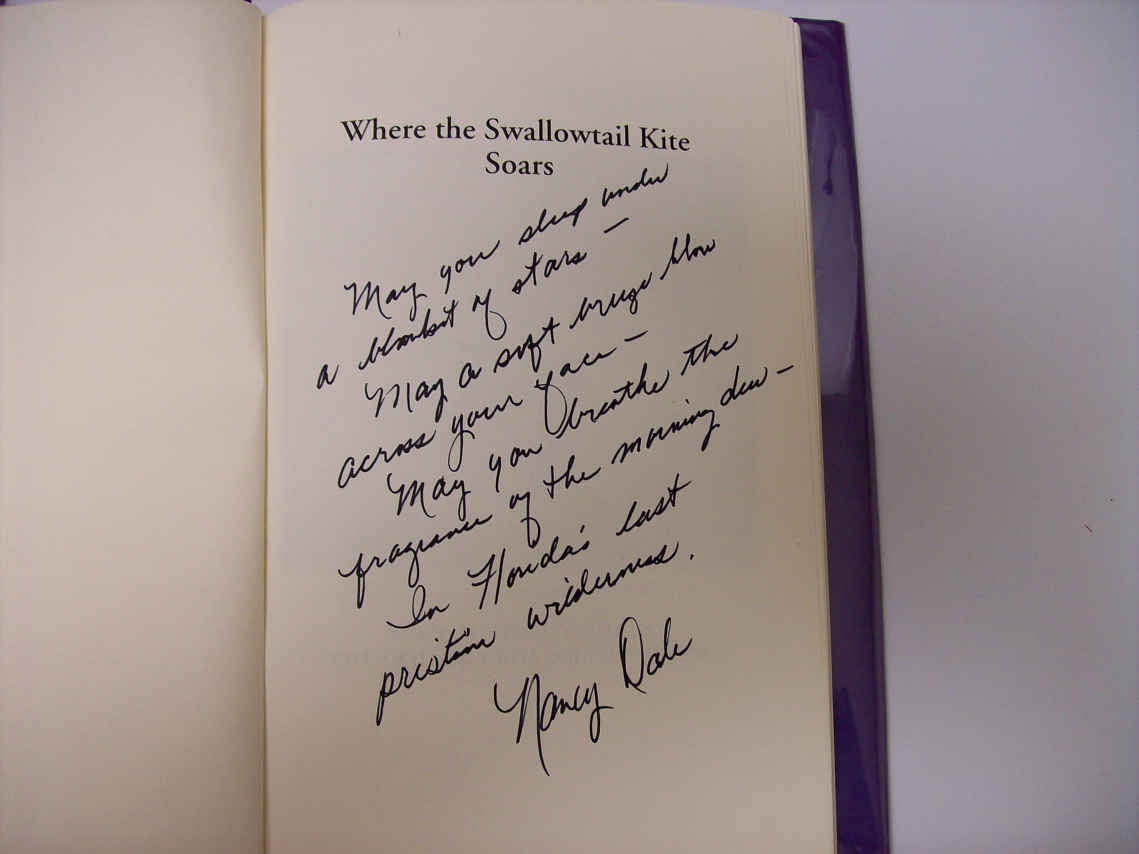 Where the Swallowtail Kite
Soars
May you sleep under
a blanket of stars —
May a soft breeze blow
across your face —
May you breathe the
fragrance of the morning dew —
In Florida's last
pristine wilderness.
Nancy Dale